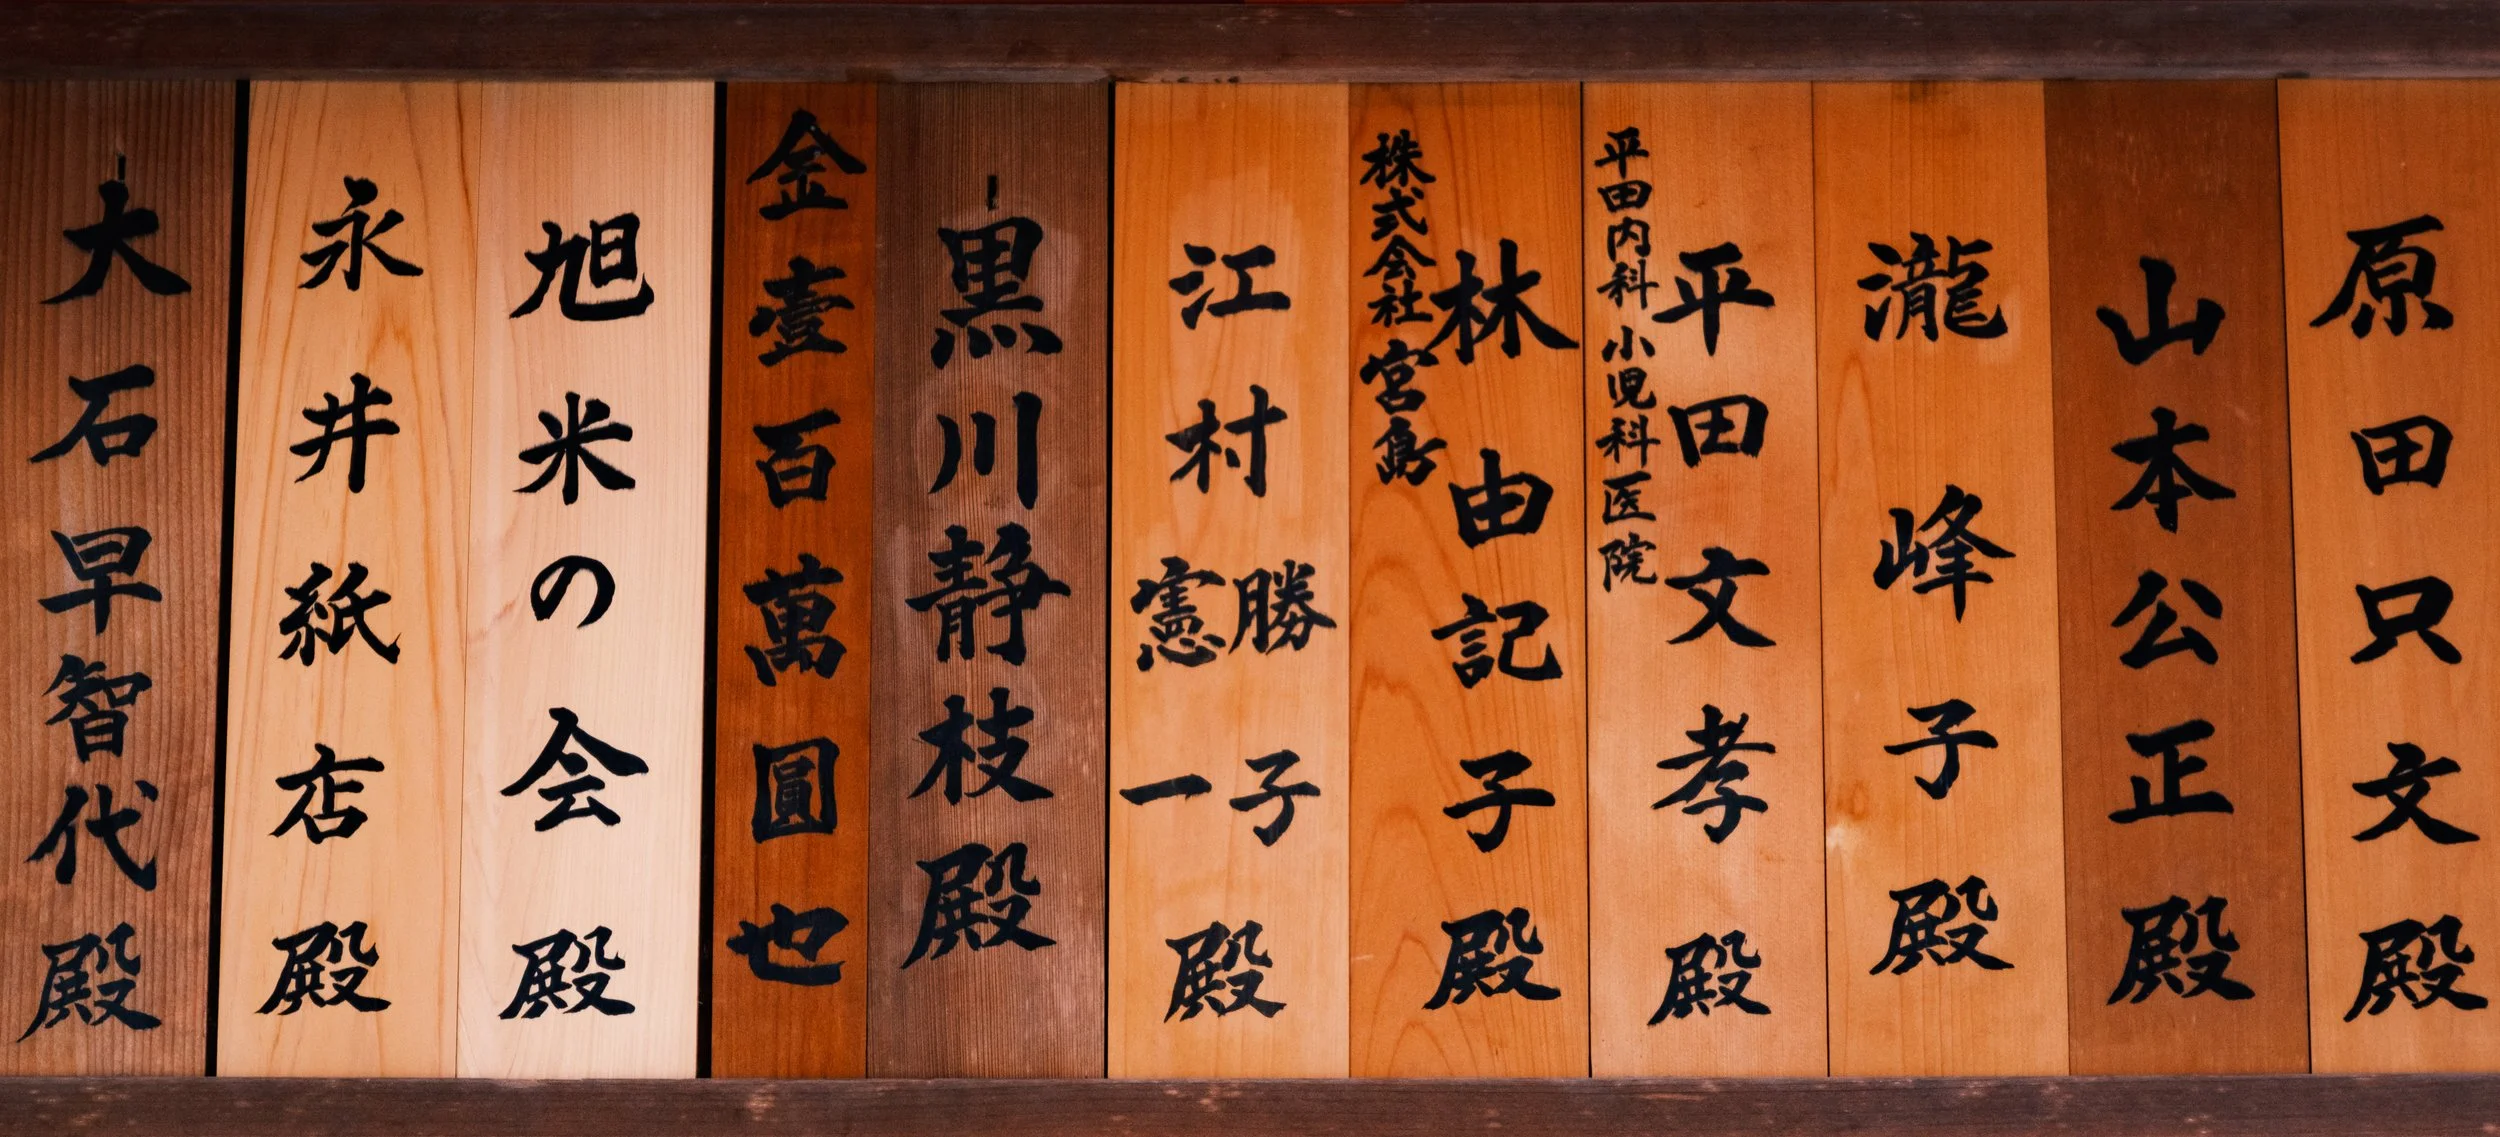 原田只文殿
山本公正殿
瀧峰子殿
平田内科小児科医院
平田文孝殿
株式会社宮島
林由記子殿
江村勝子
憲一殿
黒川静枝殿
金壹百萬圓也
旭米の会殿
永井紙店殿
大石早智代殿